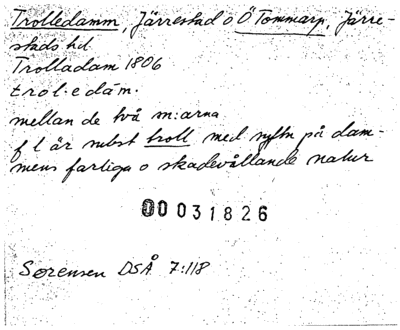 Trolledamm, Järrestad o Ö Tommarp, Järre-
stads hd.
Trolladam 1806
trol·edám.
mellan de två m:arna
f l är subst troll med syftn på dam-
mens farliga o skadevållande natur
00031826
Sørensen DSÅ 7:118